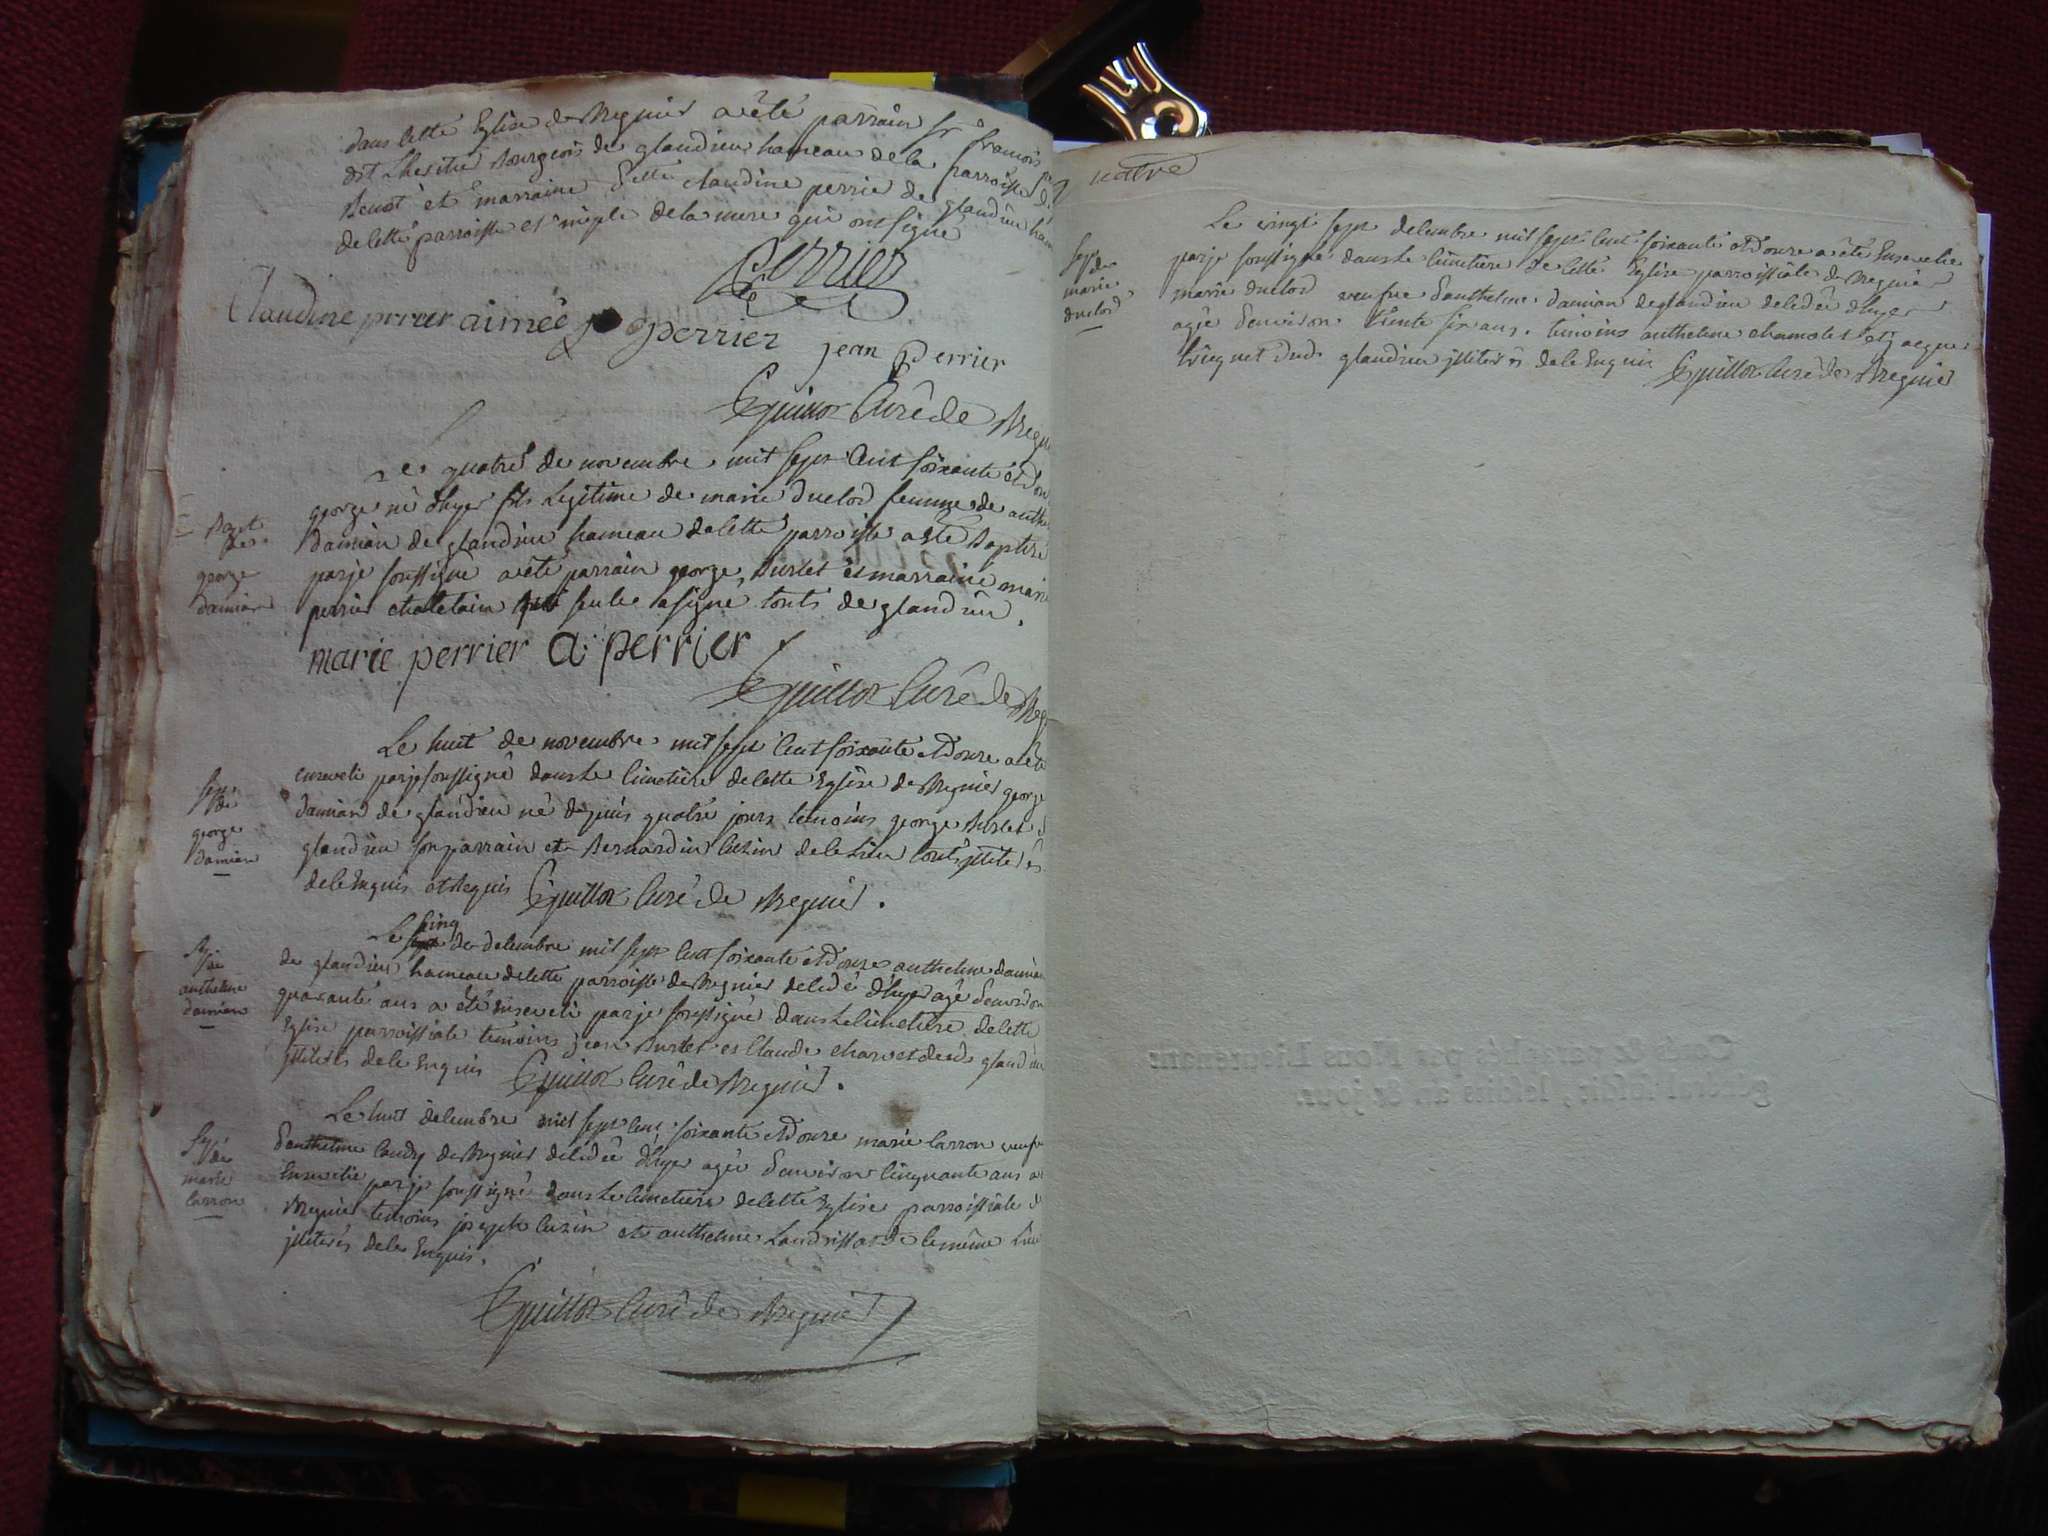 dans cette Eglise de Bregnier a êté parrain sr francois
dit Lheritié Bourgeois de glandieu hameau de la parroisse de st
Benoit et marraine delle claudine perrié de glandieu ham
de cette parroisse et niepce de la mere qui ont signé
Perrier
Claudine perrier aimée perrier
jean perrier
Guillot Curé de Bregn
Le quatre de novembre mil sept Cent soixante et dou
george né d'hyer fils Legitime de marie duclos femme de anthe
damian de glandieu hameau de cette parroisse a êté Baptisé
par je soussigné a êté parrain george Burlet et marraine marie
perrier chatelain seule a signé touts de glandieu.
Bapt de
george
damian
marie perrier a perrier
Guillot Curé de Breg
Le huit de novembre mil sept Cent soixante et douze a êté
enseveli par je soussigné dans Le Cimetière de cette Eglise de Bregnier george
damian de glandieu né depuis quatre jours temoins george Burlet d
glandieu son parrain et Bernardin Cuzin de ce Lieu touts illiterés
de ce Enquis et Requis Guillot Curé de Bregnier.
sep de
george
damian
Le Cinq de decembre mil sept Cent soixante et douze anthelme damian
de glandieu hameau de cette parroisse de Bregnier decedé d'hyer agé d'environ
quarante ans a été enseveli par je soussigné dans Le Cimetière de cette
Eglise parroissiale temoins jean Burlet et Claude charvet de glandieu
illiterés de ce Enquis Guillot Curé de Bregnier.
sep de
anthelme
damian
Le huit decembre mil sept Cent soixante et douze marie Carron veufve
d'anthelme Caudy de Bregnier decedée d'hyer agée d'environ Cinquante ans a
Ensevelie par je soussigné dans Le Cimetiere de cette Eglise parroissiale d
Bregnier temoins joseph Cuzin et anthelme Landrissat de ce même Lieu
illiterés de ce Enquis.
sep de
marie
Carron
Guillot Curé de Bregnier
quatre
Le vingt sept decembre mil sept Cent soixante et douze a êté Ensevelie
par je soussigné dans Le Cimetière de cette Eglise parroissiale de Bregnier
marie duclos veufve d'anthelme damian de glandieu decedée d'hyer
agée d'environ trente six ans. temoins anthelme chamolet et jacque
Guillot Curé de Bregnier
sep de
marie
duclos